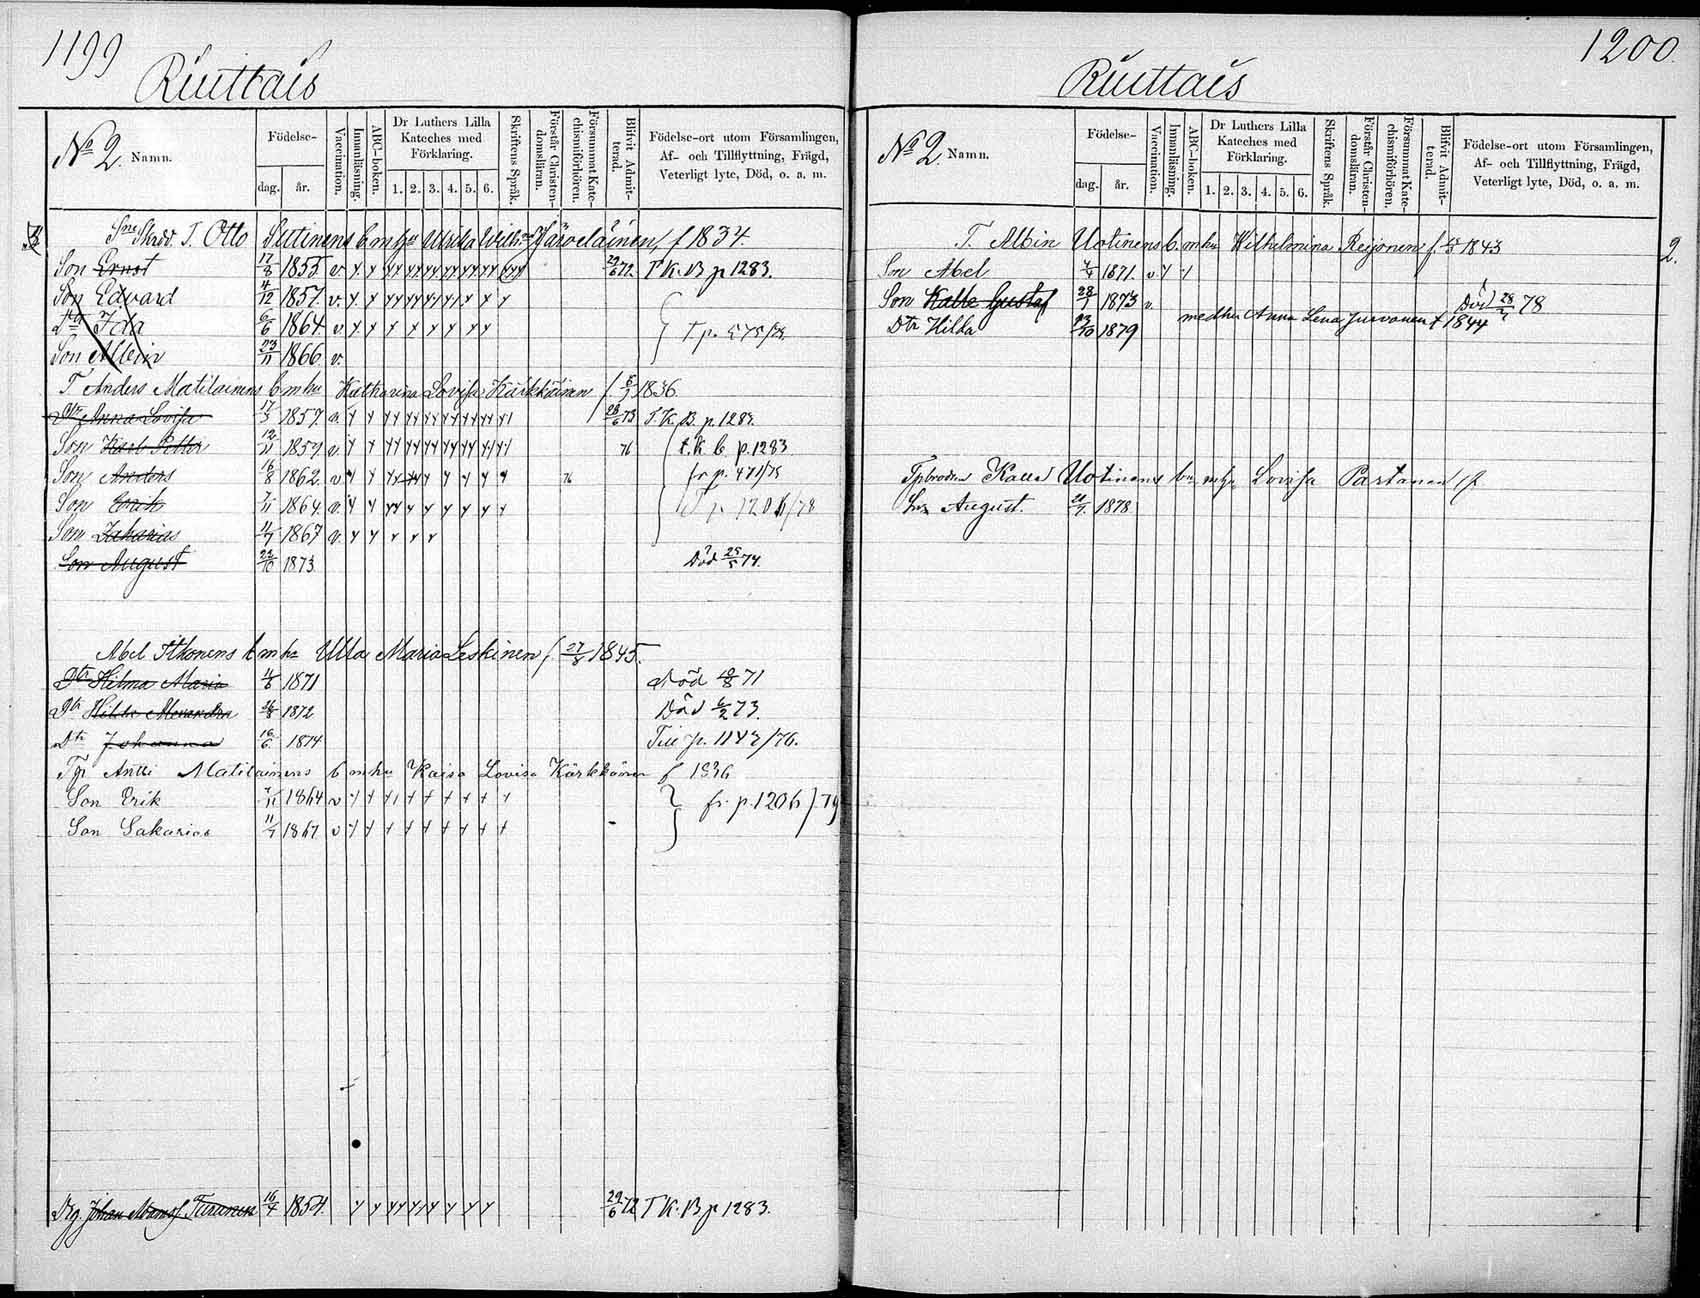 1199
Riuttais
No 2. Namn.
Födelse-
dag.
år.
Vaccination.
Innanläsning.
ABC-boken.
Dr Luthers Lilla Kateches med Förklaring.
1. 2. 3. 4. 5. 6.
Skriftens Språk.
Förstår Christendomsläran.
Försummat Katechismiförhören.
Blifvit Admitterad.
Födelse-ort utom Församlingen, Af- och Tillflyttning, Frägd, Veterligt lyte, Död, o. a. m.
T. Otto Sutinens b. m hu Ulrika Järveläinen f 1834.
Son Ernst 17/8 1855 v. 29/6 72. T K. B p 1283.
Son Edvard 4/12 1857. v.
Dtr Ida 6/6 1864. v.
Son Albin 23/11 1866 v.
T Anders Matilainens b m hu Katharina Lovisa Kärkkäinen f 5/7 1836.
Dtr Anna Lovisa 17/3 1857. v. 28/6 73 T. K. B. p. 1283.
Son Karl Petter 12/11 1859 v 76 t. k b p. 1283
Son Anders 16/8 1862. v 76 fr p. 471/75
Son Erik 7/11 1864. v. T p. 1206/78
Son Zakarias 11/7 1867 v.
Son August 22/10 1873 Död 25/5 74.
Abel Itkonens b m hu Ulla Maria Leskinen f. 27/8 1845.
Dtr Hilma Maria 1871 Död 71
Dtr Hilda Alexandra 26/8 1872 Död 6/2 73.
Dtr Johanna 16/6 1874 Till p. 1147/76.
Tp Antti Matilainens b m hu Kaisa Lovisa Kärkkäinen f 1836
Son Erik 7/11 1864 v fr. p. 1206/79
Son Sakarias 11/7 1867 v
Drg. Johan Adamsf Turunen 16/4 1854. 29/6 72 T K. B p 1283.
1200.
Riuttais
No 2 Namn.
Födelse-
dag.
år.
Vaccination.
Innanläsning.
ABC-boken.
Dr Luthers Lilla Kateches med Förklaring.
1. 2. 3. 4. 5. 6.
Skriftens Språk.
Förstår Christendomsläran.
Försummat Katechismiförhören.
Blifvit Admitterad.
Födelse-ort utom Församlingen, Af- och Tillflyttning, Frägd, Veterligt lyte, Död, o. a. m.
T. Albin Uotinens b. m hu Wilhelmina Reijonen f. 1843
2.
Son Abel 1871. v
Son Kalle Gustaf 28/1 1873 v. Död 28/4 78
med hu Anna Lena Jurvanen f 1844
Dtr Hilda 23/10 1879
Tpbrodren Kalle Uotinens b. m hu Lovisa Partanen f.
Son August. 1878